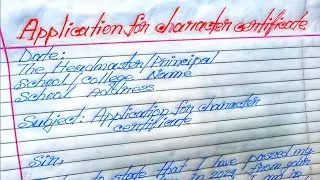 Application for character certificate
Date:
The Headmaster/Principal
School/College Name
School Address
Subject: Application for character
certificate
Sir,
to state that I have passed my
in 2021 from